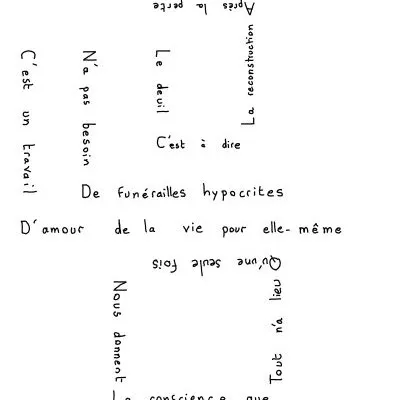 Après la perte
La reconstruction
Le deuil
N'a pas besoin
C'est un travail
C'est à dire
De funérailles hypocrites
D'amour de la vie pour elle-même
Qu'une seule fois
Tout n'a lieu
Nous donnent
La conscience que